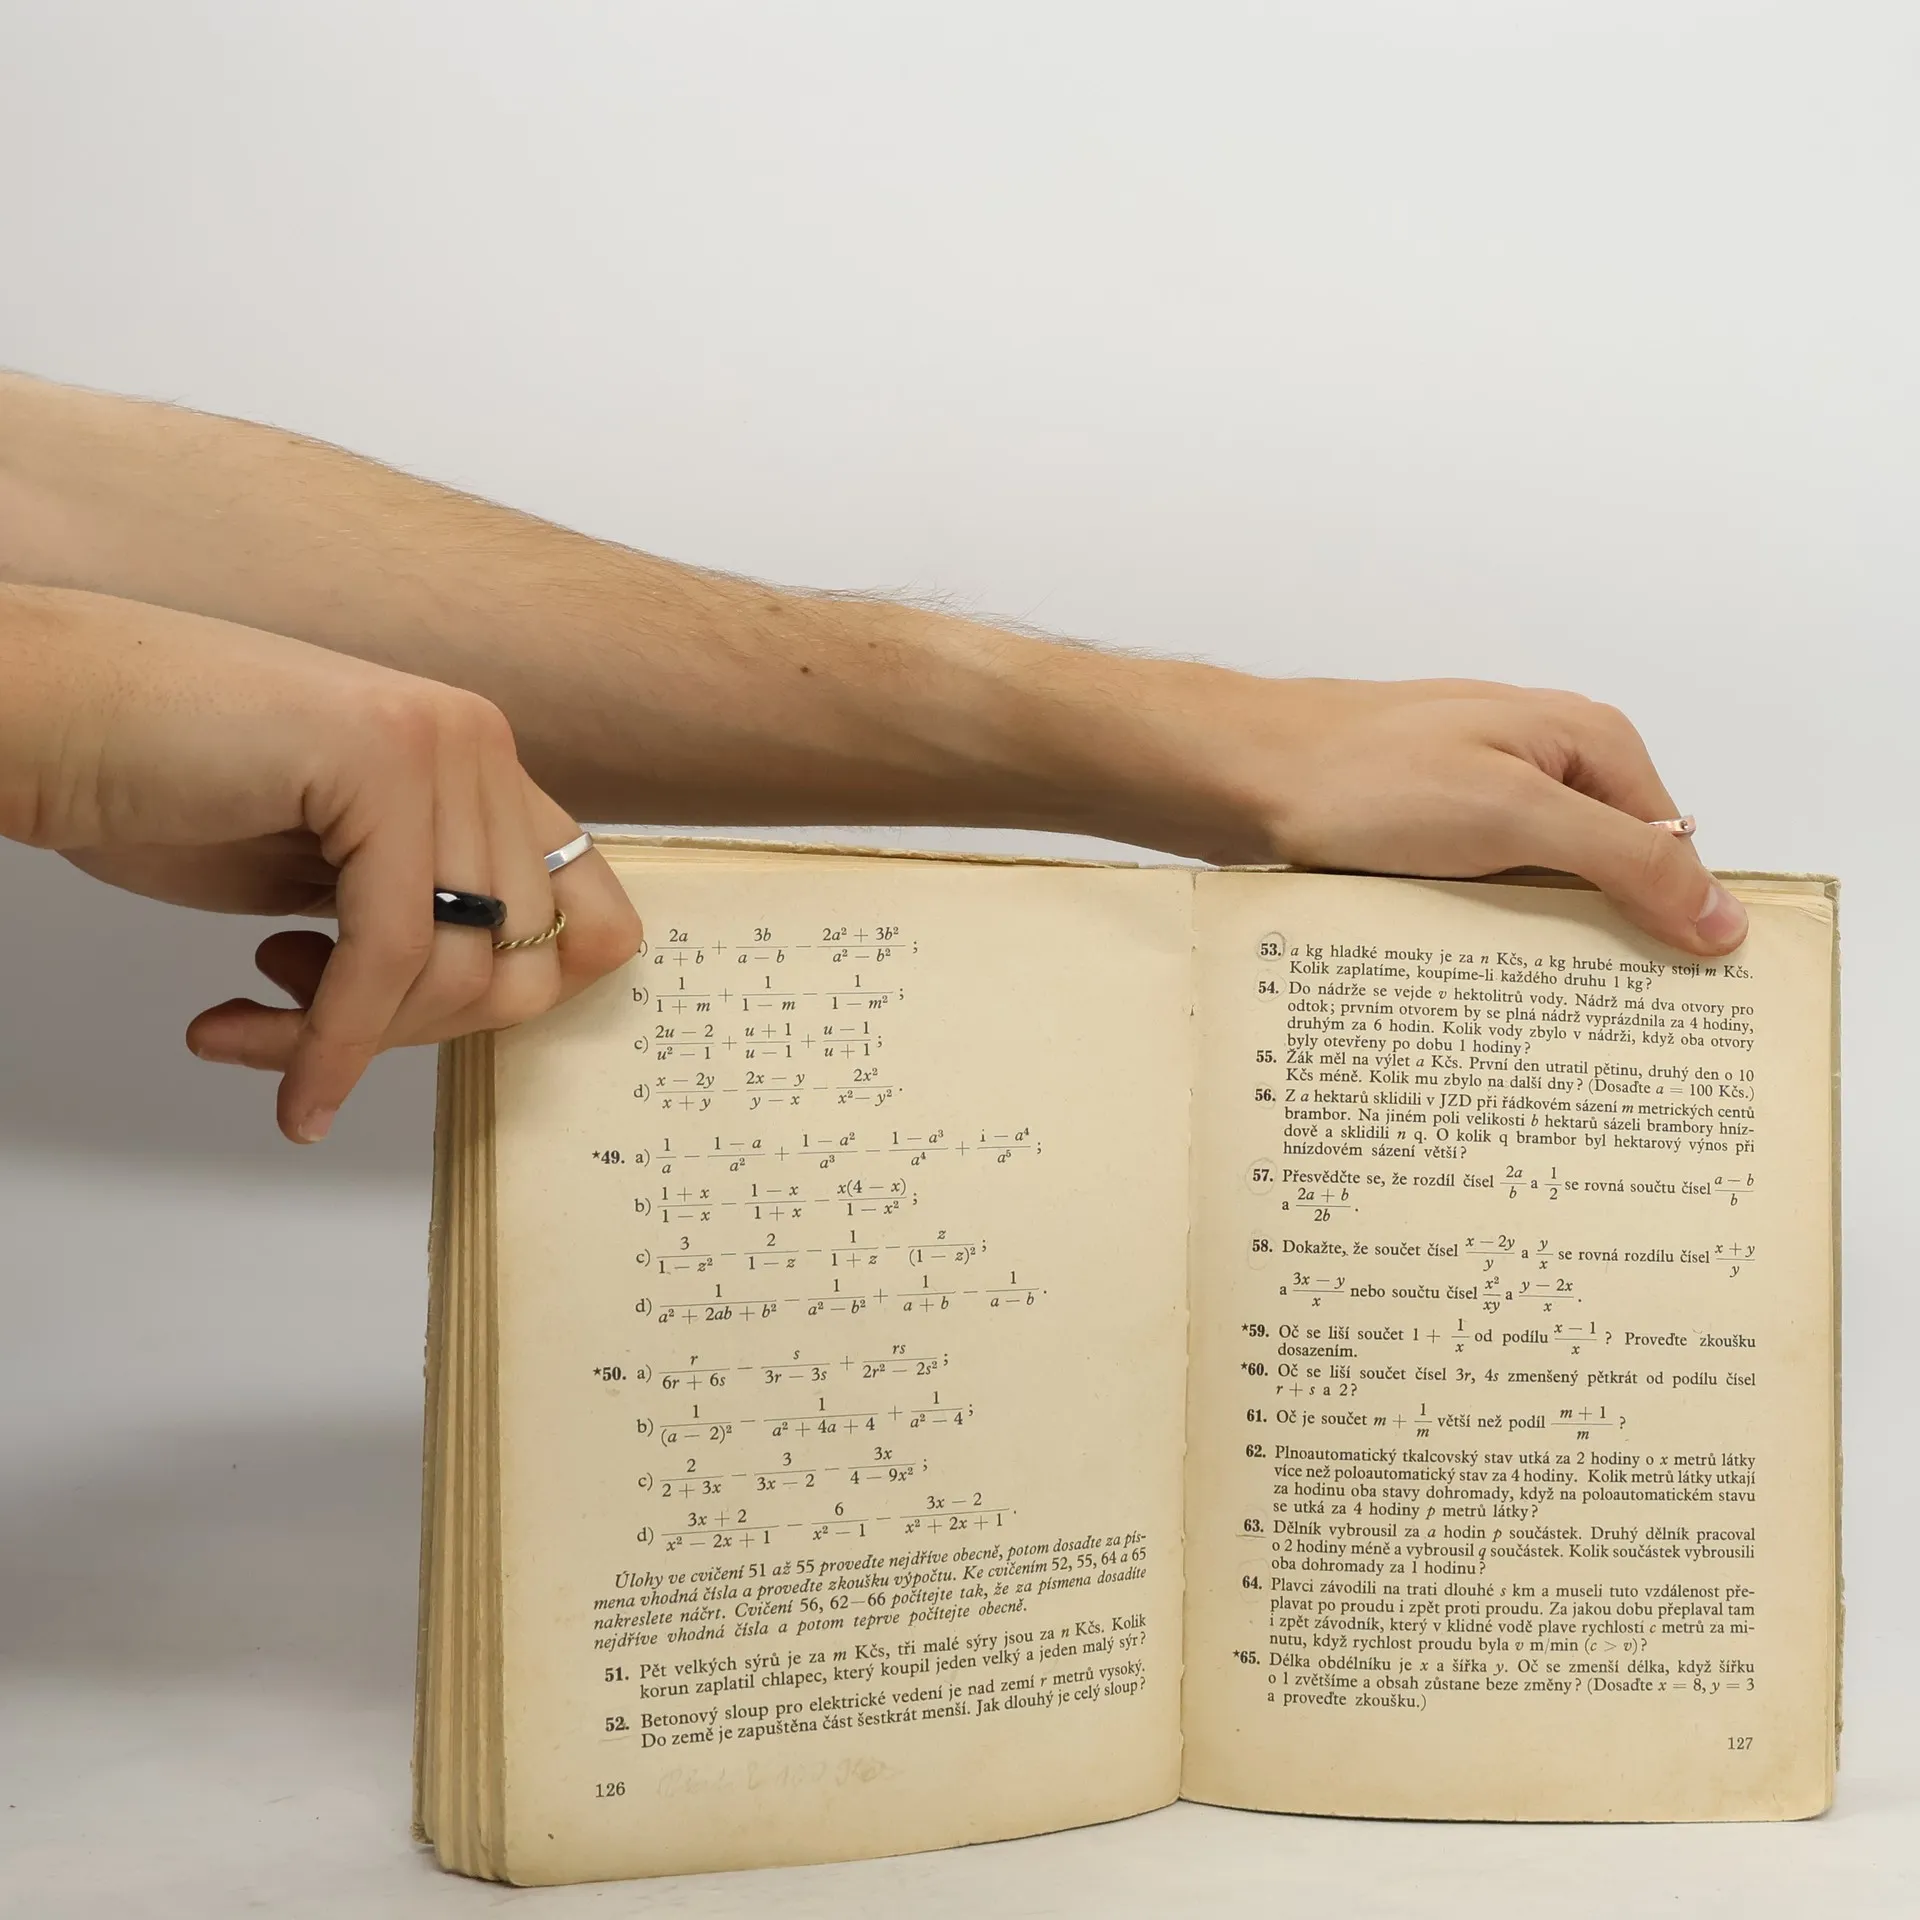 ) \frac{2a}{a + b} + \frac{3b}{a − b} − \frac{2a² + 3b²}{a² − b²} ;
b) \frac{1}{1 + m} + \frac{1}{1 − m} − \frac{1}{1 − m²} ;
c) \frac{2u − 2}{u² − 1} + \frac{u + 1}{u − 1} + \frac{u − 1}{u + 1} ;
d) \frac{x − 2y}{x + y} − \frac{2x − y}{y − x} − \frac{2x²}{x² − y²} .
*49. a) \frac{1}{a} − \frac{1 − a}{a²} + \frac{1 − a²}{a³} − \frac{1 − a³}{a⁴} + \frac{1 − a⁴}{a⁵} ;
b) \frac{1 + x}{1 − x} − \frac{1 − x}{1 + x} − \frac{x(4 − x)}{1 − x²} ;
c) \frac{3}{1 − z²} − \frac{2}{1 − z} − \frac{1}{1 + z} − \frac{z}{(1 − z)²} ;
d) \frac{1}{a² + 2ab + b²} − \frac{1}{a² − b²} + \frac{1}{a + b} − \frac{1}{a − b} .
*50. a) \frac{r}{6r + 6s} − \frac{s}{3r − 3s} + \frac{rs}{2r² − 2s²} ;
b) \frac{1}{(a − 2)²} − \frac{1}{a² + 4a + 4} + \frac{1}{a² − 4} ;
c) \frac{2}{2 + 3x} − \frac{3}{3x − 2} − \frac{3x}{4 − 9x²} ;
d) \frac{3x + 2}{x² − 2x + 1} − \frac{6}{x² − 1} − \frac{3x − 2}{x² + 2x + 1} .
Úlohy ve cvičení 51 až 55 proveďte nejdříve obecně, potom dosaďte za pís-
mena vhodná čísla a proveďte zkoušku výpočtu. Ke cvičením 52, 55, 64 a 65
nakreslete náčrt. Cvičení 56, 62—66 počítejte tak, že za písmena dosadíte
nejdříve vhodná čísla a potom teprve počítejte obecně.
51. Pět velkých sýrů je za m Kčs, tři malé sýry jsou za n Kčs. Kolik
korun zaplatil chlapec, který koupil jeden velký a jeden malý sýr?
52. Betonový sloup pro elektrické vedení je nad zemí r metrů vysoký.
Do země je zapuštěna část šestkrát menší. Jak dlouhý je celý sloup?
126
53. a kg hladké mouky je za n Kčs, a kg hrubé mouky stojí m Kčs.
Kolik zaplatíme, koupíme-li každého druhu 1 kg?
54. Do nádrže se vejde v hektolitrů vody. Nádrž má dva otvory pro
odtok; prvním otvorem by se plná nádrž vyprázdnila za 4 hodiny,
druhým za 6 hodin. Kolik vody zbylo v nádrži, když oba otvory
byly otevřeny po dobu 1 hodiny?
55. Žák měl na výlet a Kčs. První den utratil pětinu, druhý den o 10
Kčs méně. Kolik mu zbylo na další dny? (Dosaďte a = 100 Kčs.)
56. Z a hektarů sklidili v JZD při řádkovém sázení m metrických centů
brambor. Na jiném poli velikosti b hektarů sázeli brambory hníz-
dově a sklidili n q. O kolik q brambor byl hektarový výnos při
hnízdovém sázení větší?
57. Přesvědčte se, že rozdíl čísel \frac{2a}{b} a \frac{1}{2} se rovná součtu čísel \frac{a − b}{b}
a \frac{2a + b}{2b} .
58. Dokažte, že součet čísel \frac{x − 2y}{y} a \frac{y}{x} se rovná rozdílu čísel \frac{x + y}{y}
a \frac{3x − y}{x} nebo součtu čísel \frac{x²}{xy} a \frac{y − 2x}{x} .
*59. Oč se liší součet 1 + \frac{1}{x} od podílu \frac{x − 1}{x} ? Proveďte zkoušku
dosazením.
*60. Oč se liší součet čísel 3r, 4s zmenšený pětkrát od podílu čísel
r + s a 2?
61. Oč je součet m + \frac{1}{m} větší než podíl \frac{m + 1}{m} ?
62. Plnoautomatický tkalcovský stav utká za 2 hodiny o x metrů látky
více než poloautomatický stav za 4 hodiny. Kolik metrů látky utkají
za hodinu oba stavy dohromady, když na poloautomatickém stavu
se utká za 4 hodiny p metrů látky?
63. Dělník vybrousil za a hodin p součástek. Druhý dělník pracoval
o 2 hodiny méně a vybrousil q součástek. Kolik součástek vybrousili
oba dohromady za 1 hodinu?
64. Plavci závodili na trati dlouhé s km a museli tuto vzdálenost pře-
plavat po proudu i zpět proti proudu. Za jakou dobu přeplaval tam
i zpět závodník, který v klidné vodě plave rychlostí c metrů za mi-
nutu, když rychlost proudu byla v m/min (c > v)?
*65. Délka obdélníku je x a šířka y. Oč se zmenší délka, když šířku
o 1 zvětšíme a obsah zůstane beze změny? (Dosaďte x = 8, y = 3
a proveďte zkoušku.)
127